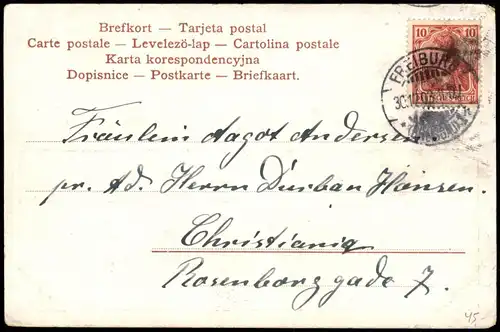 Brefkort — Tarjeta postal
Carte postale — Levelezö-lap — Cartolina postale
Karta korespondencyjna
Dopisnice — Postkarte — Briefkaart.
10 10
FREIBURG
Fräulein Aagot Andersen
pr. Ad. Herrn Durban Hansen.
Christiania
Rosenborggade 7.
45